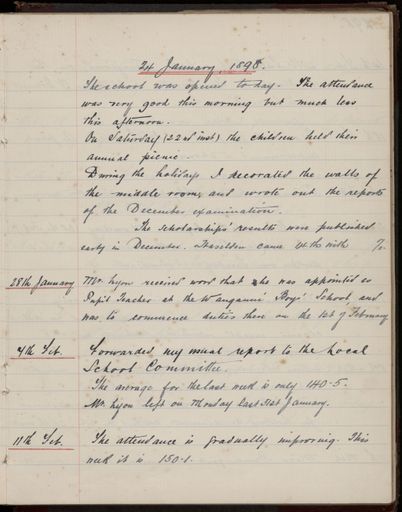 24 January, 1898.
The school was opened to-day. The attendance
was very good this morning but much less
this afternoon.
On Saturday (22nd inst) the children held their
annual picnic.
During the holidays I decorated the walls of
the middle room, and wrote out the reports
of the December examination.
The Scholarships' results were published
early in December. came 4th with
28th January
Mr. Lyon received word that he was appointed as
Pupil Teacher at the Wanganui Boys' School, and
was to commence duties there on the 1st of February
4th Feb.
Forwarded my usual report to the Local
School Committee.
The average for the last week is only 140.5.
Mr. Lyon left on Monday last 31st January.
11th Feb.
The attendance is gradually improving. This
week it is 150.1.